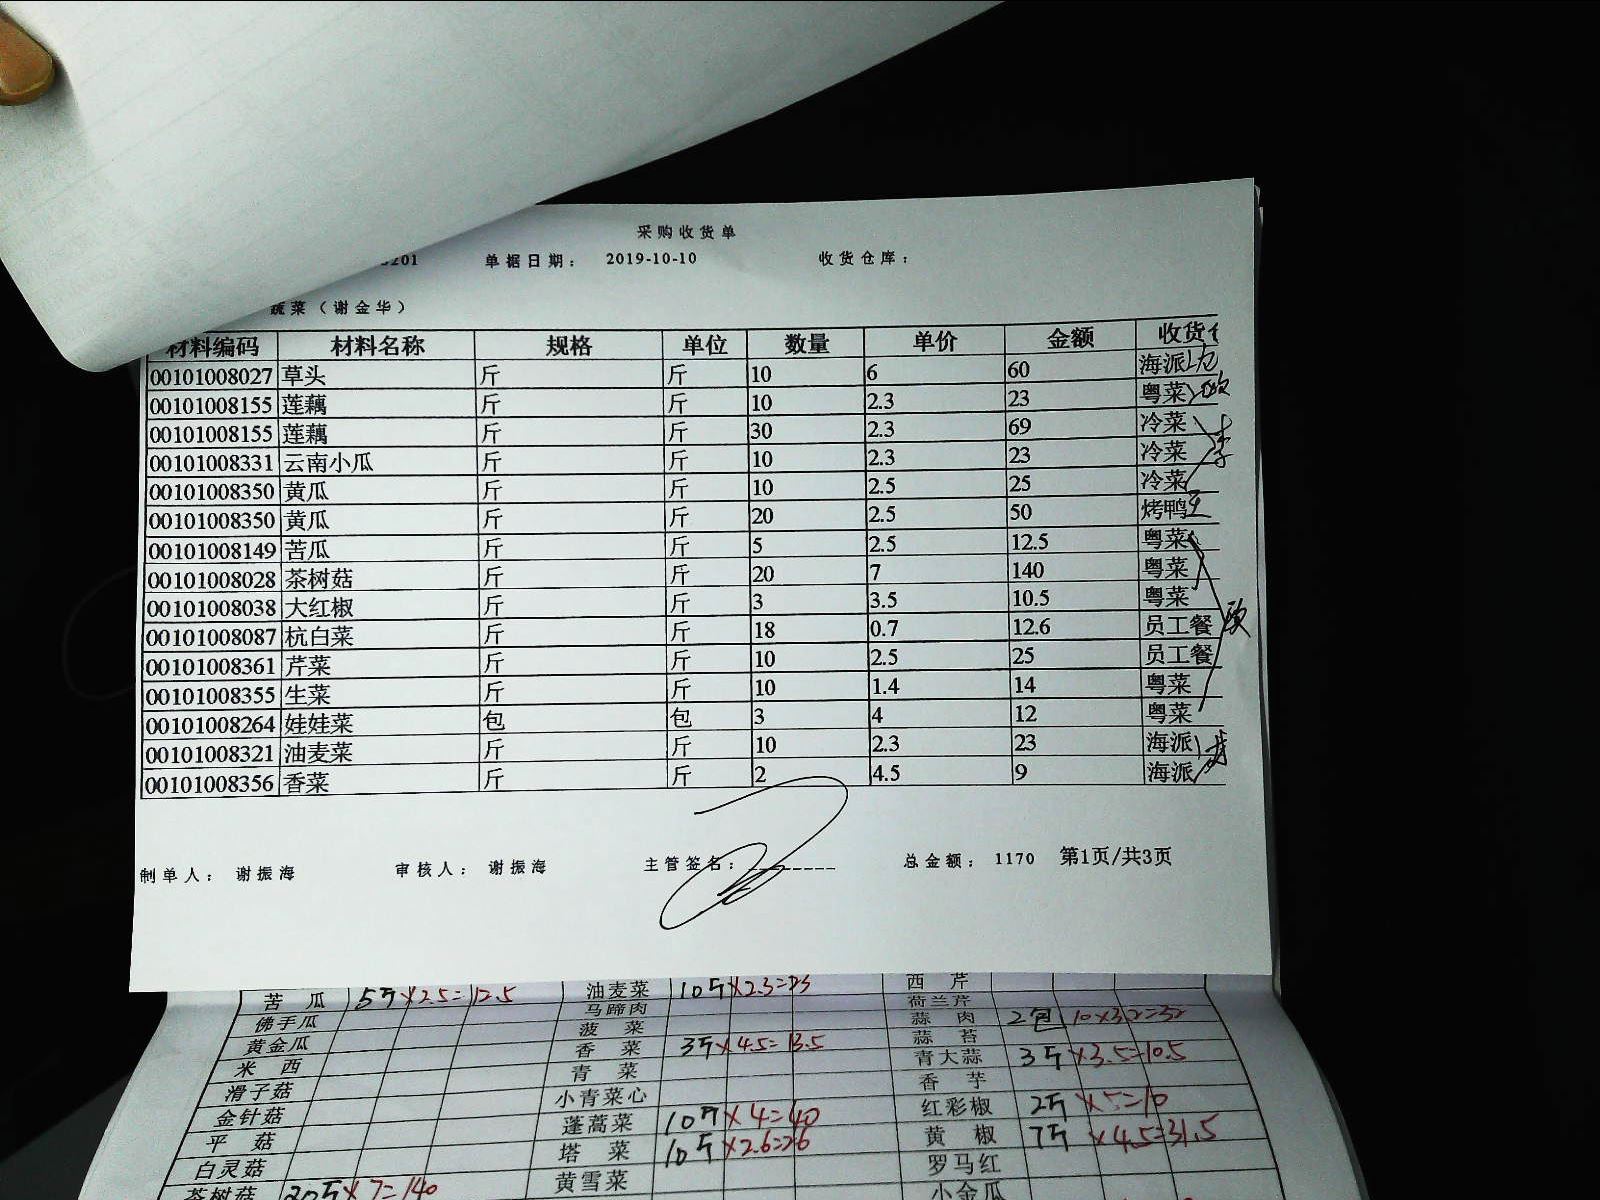 采购收货单
3201 单据日期： 2019-10-10 收货仓库：
蔬菜（谢金华）
材料编码 材料名称 规格 单位 数量 单价 金额 收货
00101008027 草头 斤 斤 10 6 60 海派
00101008155 莲藕 斤 斤 10 2.3 23 粤菜
00101008155 莲藕 斤 斤 30 2.3 69 冷菜
00101008331 云南小瓜 斤 斤 10 2.3 23 冷菜
00101008350 黄瓜 斤 斤 10 2.5 25 冷菜
00101008350 黄瓜 斤 斤 20 2.5 50 烤鸭
00101008149 苦瓜 斤 斤 5 2.5 12.5 粤菜
00101008028 茶树菇 斤 斤 20 7 140 粤菜
00101008038 大红椒 斤 斤 3 3.5 10.5 粤菜
00101008087 杭白菜 斤 斤 18 0.7 12.6 员工餐
00101008361 芹菜 斤 斤 10 2.5 25 员工餐
00101008355 生菜 斤 斤 10 1.4 14 粤菜
00101008264 娃娃菜 包 包 3 4 12 粤菜
00101008321 油麦菜 斤 斤 10 2.3 23 海派
00101008356 香菜 斤 斤 2 4.5 9 海派
制单人： 谢振海 审核人： 谢振海 主管签名： 总金额： 1170 第1页/共3页
苦瓜 5斤×2.5=12.5 油麦菜 10斤×2.3=23 西芹
佛手瓜 马蹄肉 荷兰芹
黄金瓜 菠菜 蒜肉 2包
米西 香菜 3斤×4.5=13.5 蒜苔
滑子菇 青菜 青大蒜 3斤×3.5=10.5
金针菇 小青菜心 香芋
平菇 蓬蒿菜 10斤×4=40 红彩椒 2斤×5=10
白灵菇 塔菜 10斤×2.6=26 黄椒 7斤×4.5=31.5
茶树菇 20斤×7=140 黄雪菜 罗马红
小金瓜